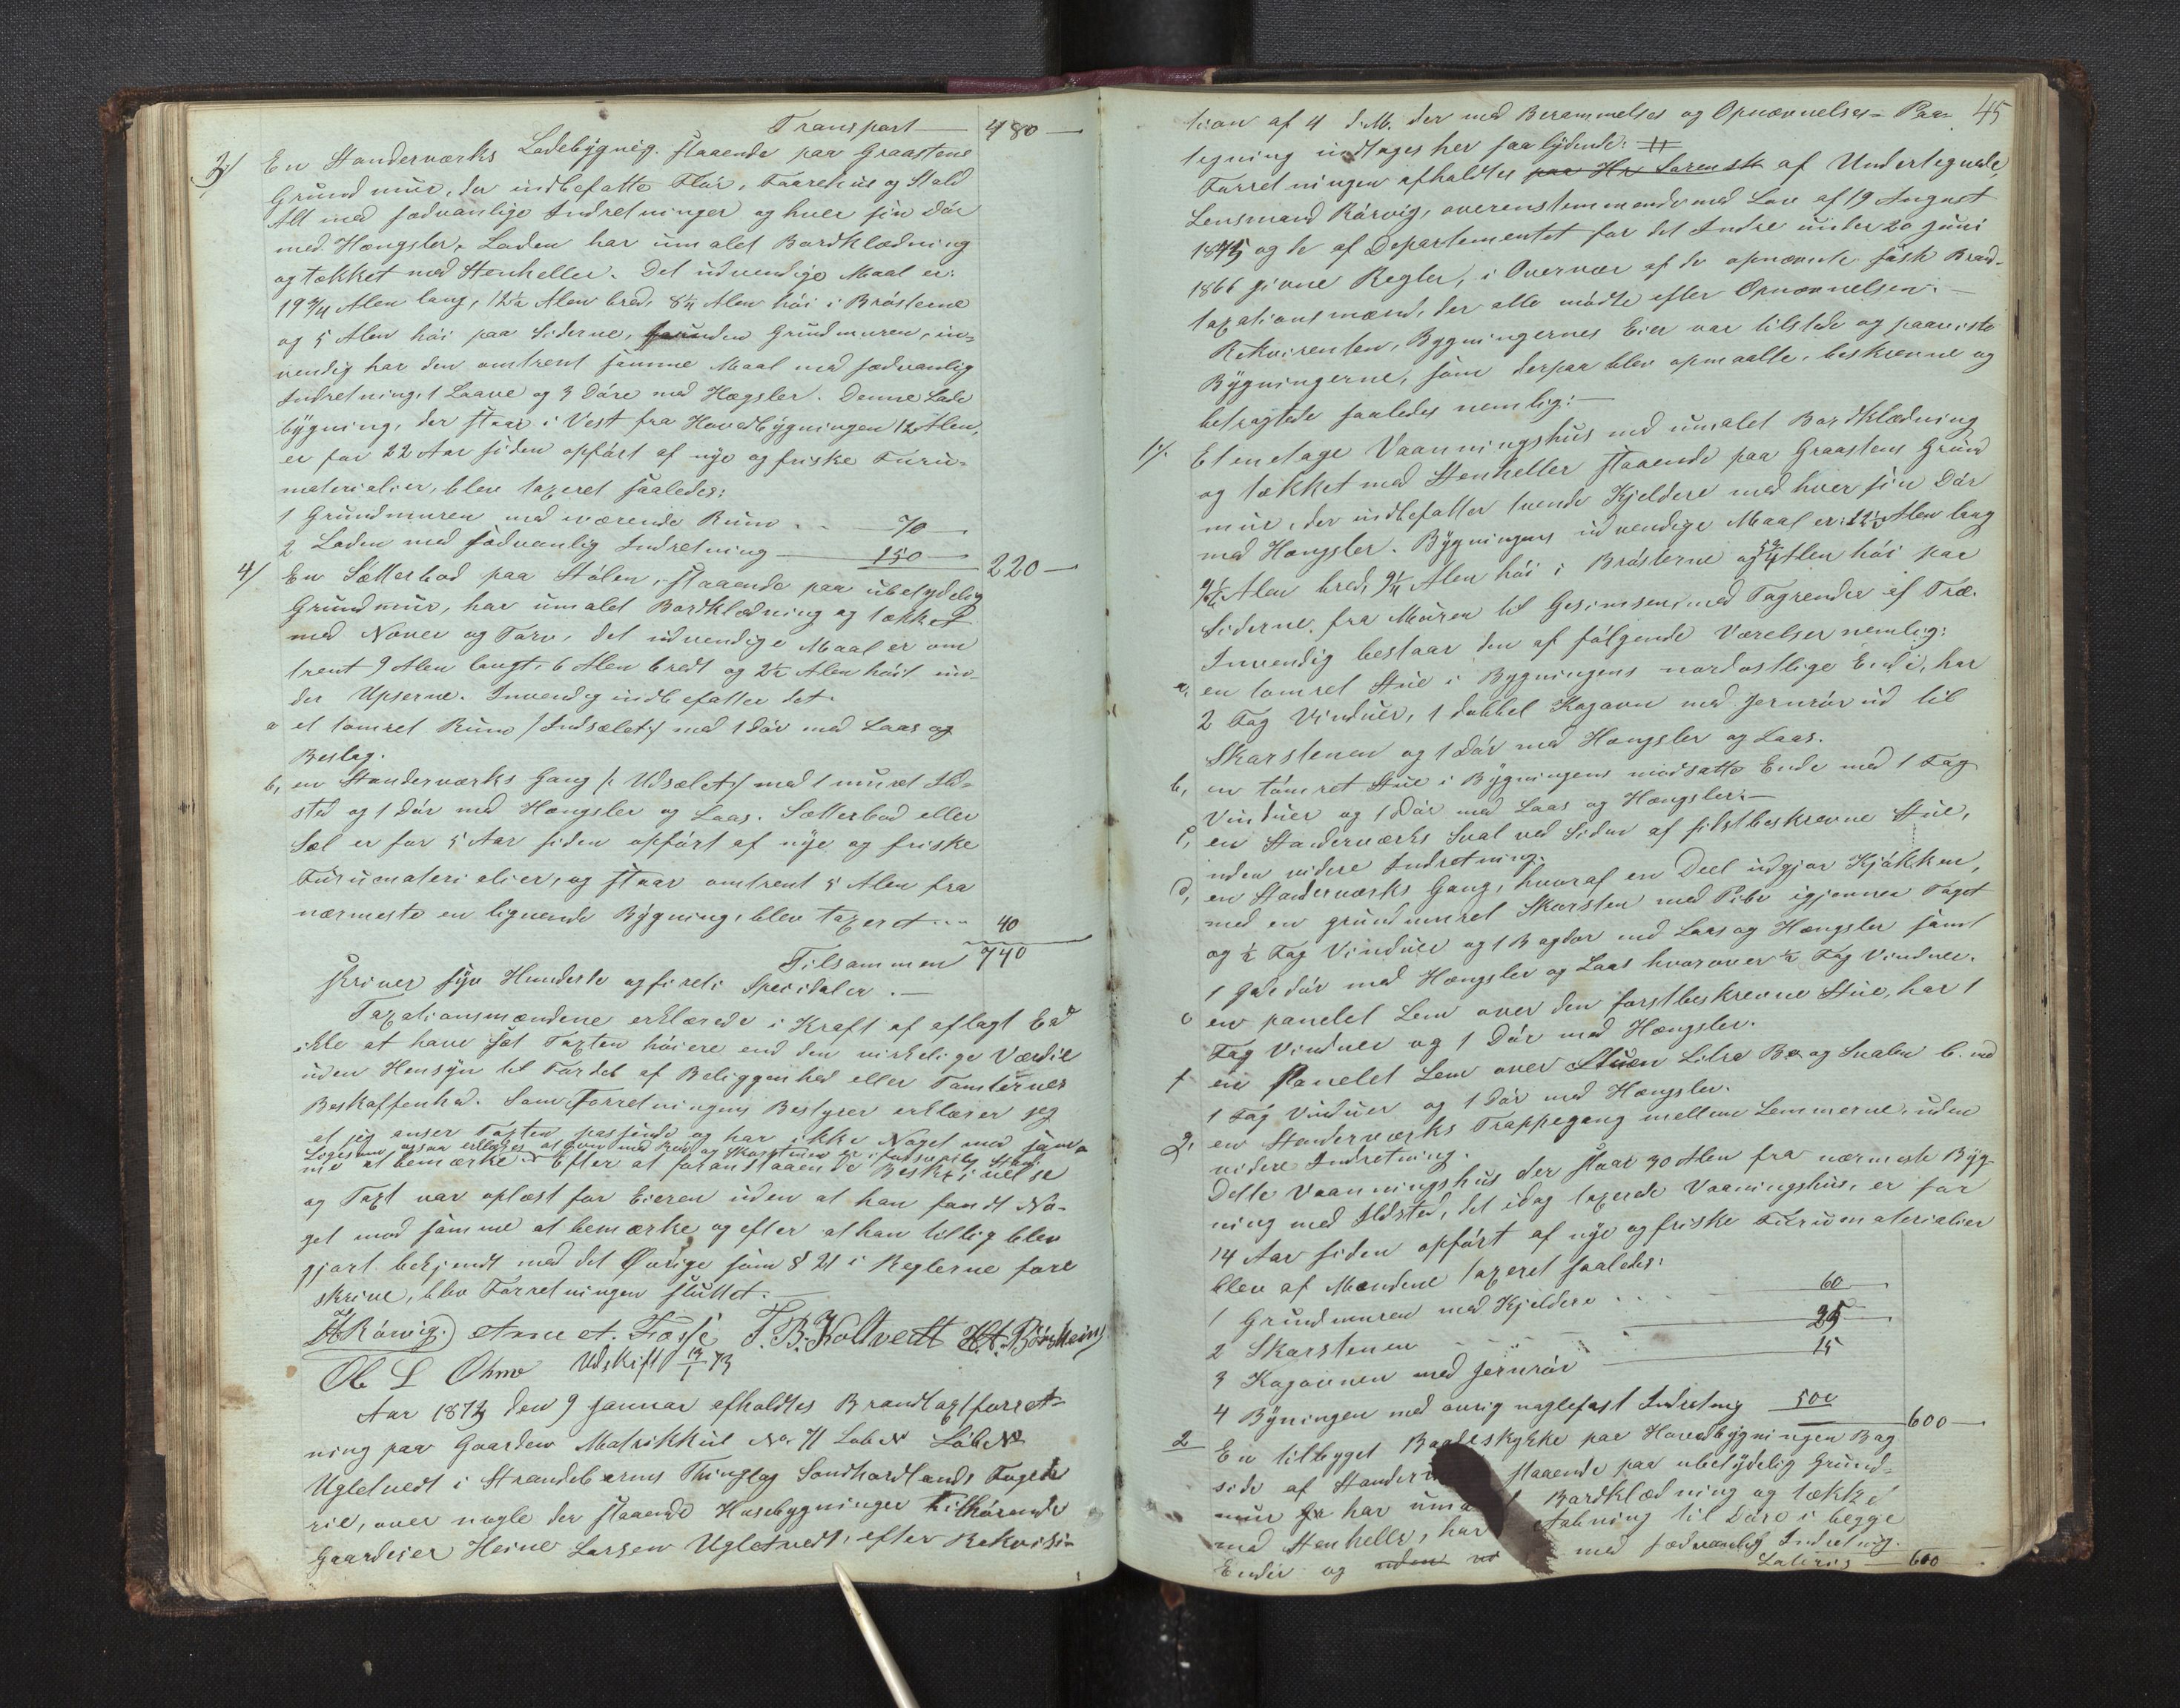 Transport — 480 —
3/ En Standerværks Ladebygnig. staaende paa Graastens
Grundmur, der indbefatte Flor, Faarehus og Stald
Alt med sædvanlige Indretninger og hver sin Dör
med Hængsler. Laden har umalet Bordklædning
og tækket med Stenheller. Det udvendige Maal er:
19 3/4 Alen lang, 12 1/2 Alen bred, 8 1/4 Alen höi i Brösterne
og 5 Alen höi paa Siderne, foruden Grundmuren, in-
vendig har den omtrent samme Maal med sædvanlig
Indretning, 1 Laave og 3 Döre med Hægsler. Denne Lade
bygning, der staar i Vest fra Hovedbygningen 12 Alen,
er for 22 Aar siden opfört af nye og friske Furu-
materialier, blev taxeret saaledes:
1 Grundmuren med værende Rum . . — 70 —
2 Laden med sædvanlig Indretning — 150 — 220 —
4/ En Sætterbod paa Stölen, staaende paa ubetydelig
Grundmur, har umalet Bordklædning og tækket
med Never og Torv, det udvendige Maal er om
trent 9 Alen langt, 6 Alen bredt og 2 1/2 Alen höit un-
der Upserne. Invendig indbefatter det.
a et tömret Rum /:Indsælet:/ med 1 Dör med Laas og
Beslag.
b, en Standerværks Gang /: Udsælet:/ med 1 muret Ild-
sted og 1 Dör med Hængsler og Laas. Sætterbod eller
Sæl er for 5 Aar siden opfört af nye og friske
Furumaterialier, og staar omtrent 5 Alen fra
nærmeste en lignende Bygning, blev taxeret . . . 40
Tilsammen 740
skriver syv Hundrede og fireti Specidaler . —
Taxationsmændene erklærede i Kraft af aflagt Ed
ikke at have sat Taxten höiere end den virkelige Værdie
uden Hensyn til Fordel af Beliggenhed eller Tomternes
Beskaffenhed. Som Forretningens Bestyrer erklærer jeg
at jeg anser Taxten passende og har ikke Noget mod sam-
Ligesom ogsaa erklæres at Ovn med Rör og Skorstenen er i forsvarlig Stand
me at bemærke. Efter at foranstaaende Beskrivelse
og Taxt var oplæst for Eieren uden at han fandt No-
get mod samme at bemærke og efter at han tillig blev
gjort bekjendt med det Övrige som § 21 i Reglerne fore
skrive, blev Forretningen sluttet. —
H. Rörvig. Arne A. Fosse T. B. Koltvedt H. A. Börsheim
Ole L Ohmo Udskift 13/1 73
Aar 1873 den 9 Januar afholdtes Brandtaxtforret-
ning paa Gaarden Matrikkul No. 71 Lob N Löb No
Ugletvedt i Strandebarms Thinglag Söndhordlands Fogde
rie, over nogle der staaende Husebygninger Tilhörende
Gaardeier Heine Larsen Ugletvedt, efter Rekvisi-
45
tion af 4 d.M. der med Berammelses og Opnævnelses-Paa-
tegning indtages her saa lydende:
Forretningen afholdtes paa Hr Sorensk af Undertegnede
Lensmand Rörvig, overenstemmende med Lov af 19 August
1845 og de af Departementet for det Indre under 20 Juni
1866 givne Regler, i Overvær af de opnævnte fast Brand-
taxationsmænd, der alle mödte efter Opnævnelsen. —
Rekvirenten, Bygningernes Eier var tilstede og paaviste
Bygningerne, som derpaa blev opmaalte, beskrevne og
betragtede saaledes nemlig: —
1/. Et enetage Vaanningshus med umalet Bordklædning
og tækket med Stenheller staaende paa Graastens Grund
mur, der indbefatter tvende Kjeldere med hver sin Dör
med Hængsler. Bygningens udvendige Maal er: 12 1/2 Alen lang
9 3/4 Alen bred, 9 1/4 Alen höi i Brösterne og 5 3/4 Alen höi paa
Siderne, fra Muren til Gesimsen, med Tagrender af Træ.
Invendig bestaar den af fölgende Værelser nemlig:
a, en tömret Stue i Bygningens nordostlige Ende, har
2 Fag Vinduer, 1 dobbel Kogovn med Jernrör ud til
Skorstenen og 1 Dör med Hængsler og Laas.
b, en tömret Stue i Bygningens modsatte Ende med 1 Fag
Vinduer og 1 Dör med Laas og Hængsler. —
c, en Standerværks Sval ved Siden af sidstbeskrevne Stue,
uden videre Indretning.
d, en Standerværks Gang, hvoraf en Deel udgjör Kjökken,
med en grundmuret Skorsten med Pibe igjennem Taget
og 1/2 Fag Vinduer og 1 Bagdör med Laas og Hængsler samt
1 Gadedör med Hængsler og Laas hvorover 1/2 Fag Vinduer.
e en panelet Lem over den forstbeskrevne Stue, har 1
Fag Vinduer og 1 Dör med Hængsler.
f en Panelet Lem over Stuen Litra B og Svalen C. med
1 Fag Vinduer og 1 Dör med Hængsler.
g, en Standerværks Trappegang mellem Lemmerne, uden
videre Indretning.
Dette Vaanningshus der staar 30 Alen fra nærmeste Byg-
ning med Ildsted, det idag taxerede Vaaningshus, er for
14 Aar siden opfört af nye og friske Furumaterialier
blev af Mændene taxeret saaledes:
1 Grundmuren med Kjeldere . . . — 60 —
2 Skorstenen — 25 —
3 Kogovnen med Jernrör — 15
4 Byningen med övrig naglefast Indretnig 500 — 600 —
2 En tilbygget Bordeskykke paa Hovedbygningen Bag
side af Standerv staaende paa ubetydelig Grund-
mur har uma Bordklædning og tække
med Stenhelle, har Aabning til Döre i begge
Ender og uden med sædvanlig Indretnig.
Lateris — 600